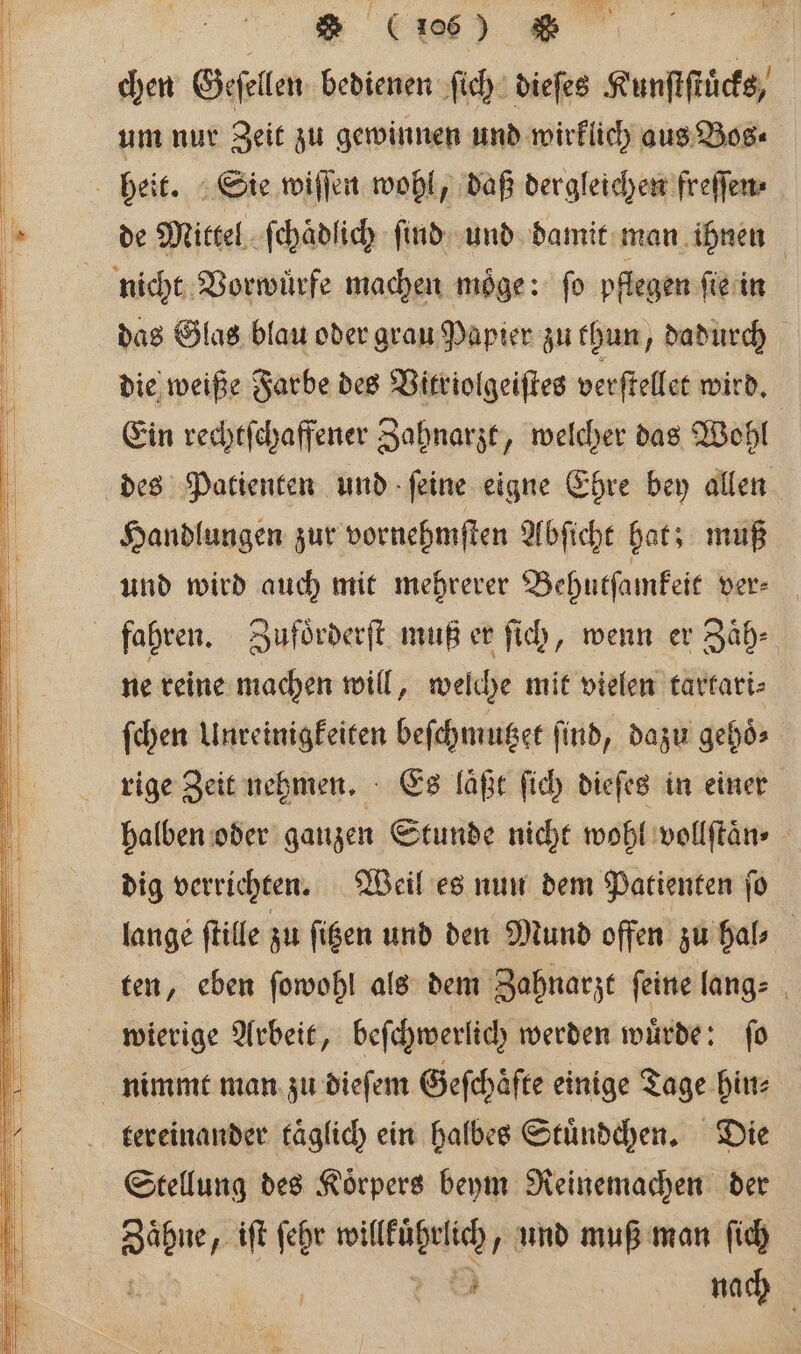 ❁ ( 106 ) ❁
chen Geſellen bedienen ſich dieſes Kunſtſtuͤcks,
um nur Zeit zu gewinnen und wirklich aus Bos-
heit. Sie wiſſen wohl, daß dergleichen freſſen-
de Mittel ſchaͤdlich ſind und damit man ihnen
nicht Vorwuͤrfe machen moͤge: ſo pflegen ſie in
das Glas blau oder grau Papier zu thun, dadurch
die weiße Farbe des Vitriolgeiſtes verſtellet wird.
Ein rechtſchaffener Zahnarzt, welcher das Wohl
des Patienten und ſeine eigne Ehre bey allen
Handlungen zur vornehmſten Abſicht hat; muß
und wird auch mit mehrerer Behutſamkeit ver-
fahren. Zufoͤrderſt muß er ſich, wenn er Zaͤh-
ne reine machen will, welche mit vielen tartari-
ſchen Unreinigkeiten beſchmutzet ſind, dazu gehoͤ-
rige Zeit nehmen. Es laͤßt ſich dieſes in einer
halben oder ganzen Stunde nicht wohl vollſtaͤn-
dig verrichten. Weil es nun dem Patienten ſo
lange ſtille zu ſitzen und den Mund offen zu hal-
ten, eben ſowohl als dem Zahnarzt ſeine lang-
wierige Arbeit, beſchwerlich werden wuͤrde: ſo
nimmt man zu dieſem Geſchaͤfte einige Tage hin-
tereinander taͤglich ein halbes Stuͤndchen. Die
Stellung des Koͤrpers beym Reinemachen der
Zaͤhne, iſt ſehr willkuͤhrlich, und muß man ſich
nach